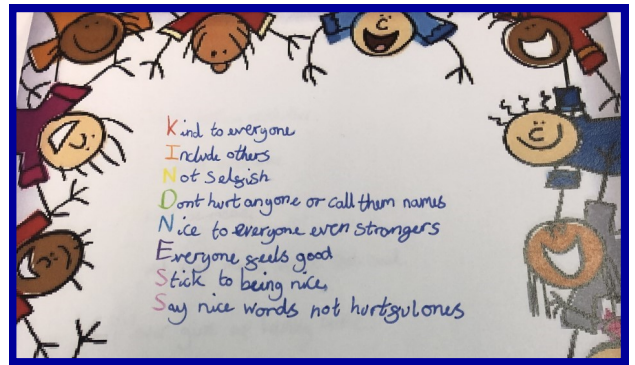 Kind to everyone
Include others
Not selfish
Dont hurt anyone or call them names
Nice to everyone even strangers
Everyone feels good
Stick to being nice,
Say nice words not hurtful ones